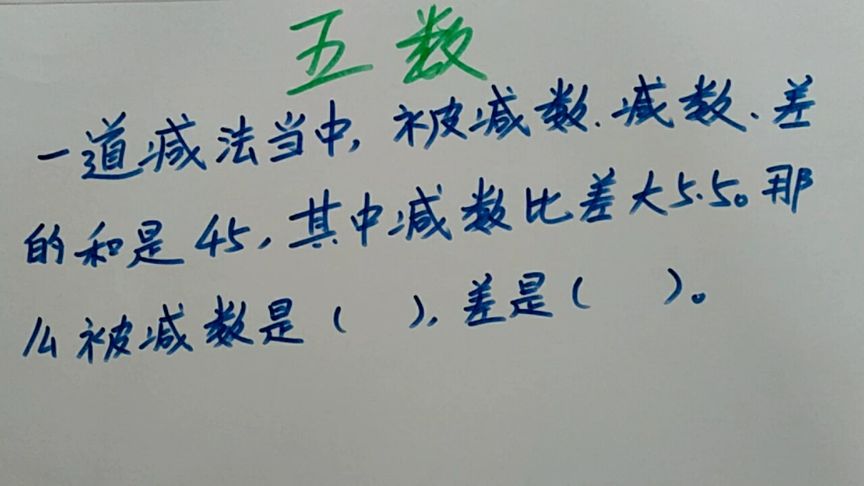 五数
一道减法当中,被减数、减数、差
的和是45,其中减数比差大5.5。那
么被减数是( ),差是( )。